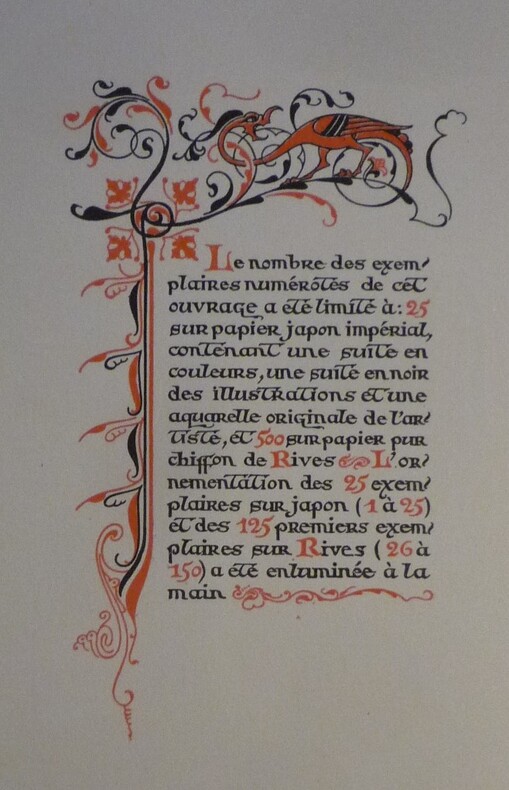 Le nombre des exem-
plaires numérotés de cet
ouvrage a été limité à: 25
sur papier japon impérial,
contenant une suite en
couleurs, une suite en noir
des illustrations et une
aquarelle originale de l'ar-
tiste, et 500 sur papier pur
chiffon de Rives L'or-
nementation des 25 exem-
plaires sur japon (1 à 25)
et des 125 premiers exem-
plaires sur Rives (26 à
150) a été enluminée à la
main